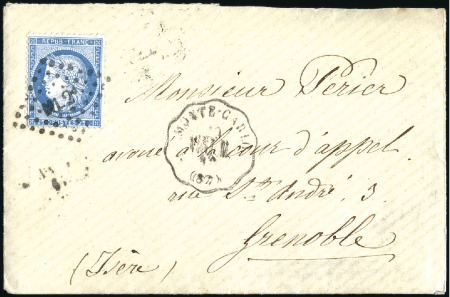 REPUB. FRANC.
MONTE-CARLO
Monsieur Périer
avoué à la Cour d'appel
rue St André 3
Grenoble
(Isère)